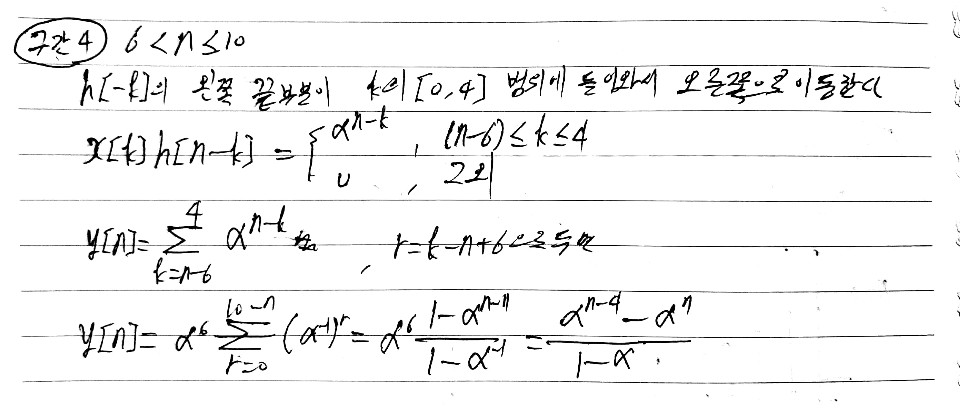 구간 4 6 < n ≤ 10
h[-k]의 왼쪽 끝부분이 k의 [0,4] 범위에 들어와서 오른쪽으로 이동한다
x[k]h[n-k] = { α^{n-k} , (n-6) ≤ k ≤ 4
0 , 그외
y[n] = Σ_{k=n-6}^{4} α^{n-k} , r=k-n+6으로 두면
y[n] = α^6 Σ_{r=0}^{10-n} (α^{-1})^r = α^6 \frac{1-α^{n-11}}{1-α^{-1}} = \frac{α^{n-4}-α^n}{1-α}.